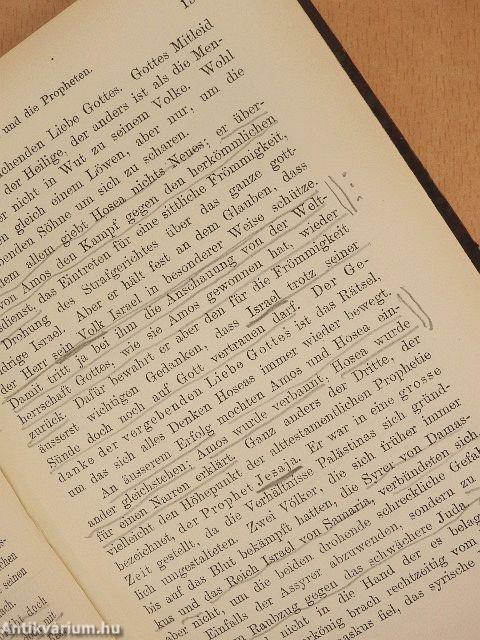 und die Propheten.
Liebe Gottes. Gottes Mitleid
der Heilige, der anders ist als die Men-
nicht in Wut zu seinem Volke. Wohl
gleich einem Löwen, aber nur, um die
Söhne um sich zu scharen.
allem giebt Hosea nichts Neues; er über-
von Amos den Kampf gegen den herkömmlichen
das Eintreten für eine sittliche Frömmigkeit,
Drohung des Strafgerichtes über das ganze gott-
Israel. Aber er hält fest an dem Glauben, dass
der Herr sein Volk Israel in besonderer Weise schütze.
Damit tritt ja bei ihm die Anschauung von der Welt-
herrschaft Gottes, wie sie Amos gewonnen hat, wieder
zurück. Dafür bewahrt er aber den für die Frömmigkeit
äusserst wichtigen Gedanken, dass Israel trotz seiner
Sünde doch noch auf Gott vertrauen darf. Der Ge-
danke der vergebenden Liebe Gottes ist das Rätsel,
um das sich alles Denken Hoseas immer wieder bewegt.
An äusserem Erfolg mochten Amos und Hosea ein-
ander gleichstehen; Amos wurde verbannt, Hosea wurde
für einen Narren erklärt. Ganz anders der Dritte, der
vielleicht den Höhepunkt der alttestamentlichen Prophetie
bezeichnet, der Prophet Jesaja. Er war in eine grosse
Zeit gestellt, da die Verhältnisse Palästinas sich gründ-
lich umgestalteten. Zwei Völker, die sich früher immer
bis auf das Blut bekämpft hatten, die Syrer von Damas-
kus und das Reich Israel von Samaria, verbündeten sich,
aber nicht, um die beiden drohende schreckliche Gefahr
Einfalls der Assyrer abzuwenden, sondern zu
Raubzug gegen das schwächere Juda.
nicht in die Hand der es belager
könig brach rechtzeitig vom
kus fiel, das syrische
seinen
doch
Antikvarium.hu